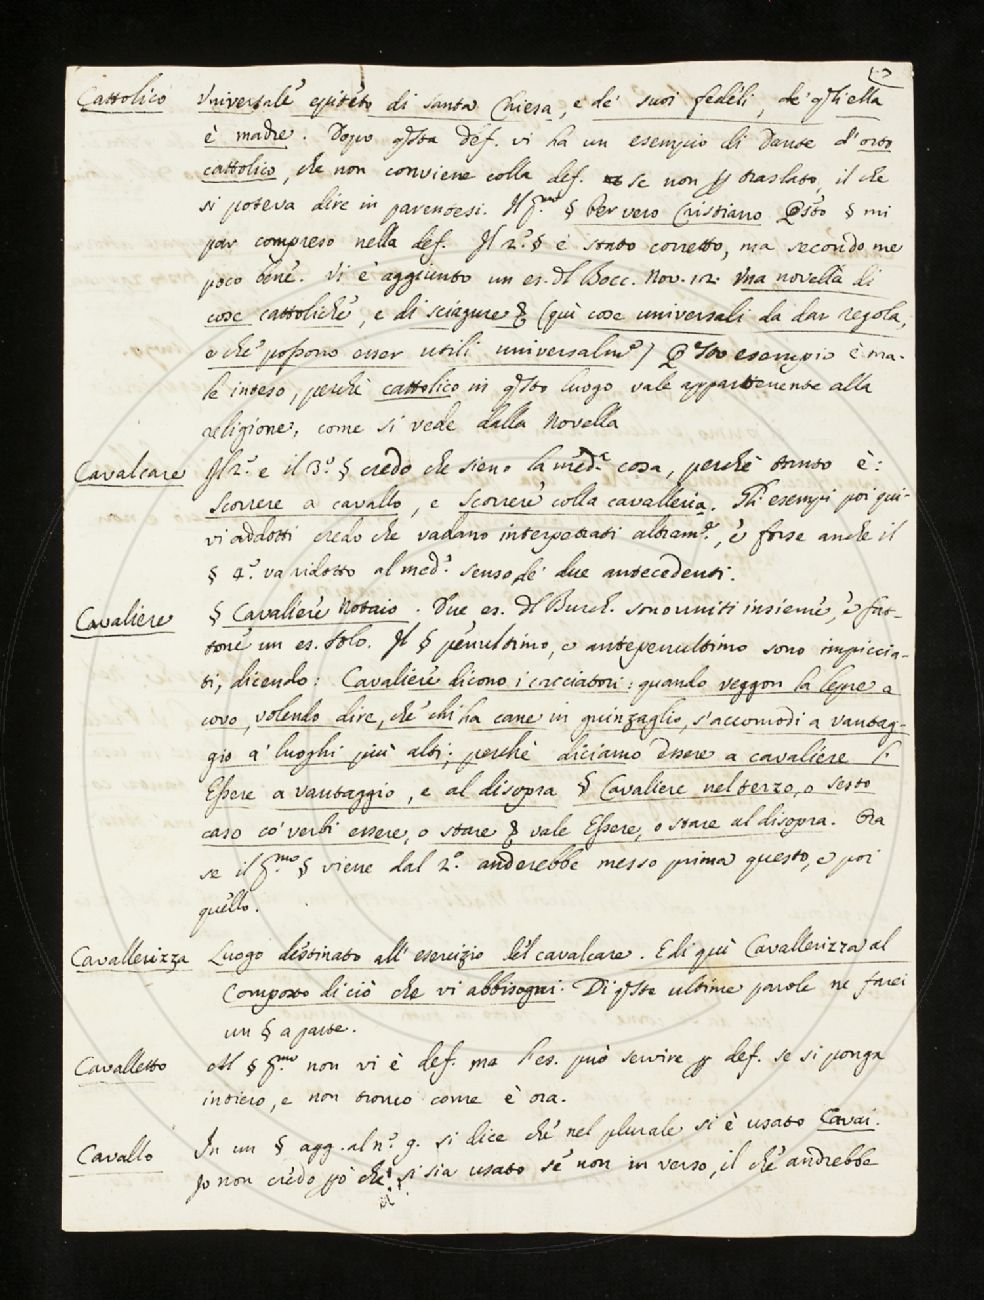 Cattolico Universale epiteto di santa Chiesa, e de' suoi fedeli, de' q.li ella
è madre. Dopo q.sta def. vi ha un esempio di Dante d'orto
cattolico, che non conviene colla def. se non p traslato, il che
si poteva dire in parentesi. Il p.mo § Per vero Cristiano Q.sto § mi
par compreso nella def. Il 2.° § è stato corretto, ma secondo me
poco bene. Vi è aggiunto un es. dl Bocc. Nov. 12. Una novella di
cose cattoliche, e di sciagure & (qui cose universali da dar regola,
e che possono esser utili universalm.e) Q.sto esempio è ma-
le inteso, perchè cattolico in q.sto luogo vale appartenente alla
religione, come si vede dalla Novella
Cavalcare Il 2.° e il 3.° § credo che sieno la med.a cosa, perchè tanto è:
Scorrere a cavallo, e scorrere colla cavalleria. Gli esempi poi qui-
vi addotti credo che vadano interpetrati altram.e, e forse anche il
§ 4.° va ridotto al med.° senso de' due antecedenti.
Cavaliere § Cavaliere Notaio. Due es. dl Burch. sono uniti insieme, e fat-
tone un es. solo. Il § penultimo, e antepenultimo sono impiccia-
ti, dicendo: Cavaliere dicono i cacciatori: quando veggon la lepre a
covo, volendo dire, che chi ha cane in guinzaglio, s'accomodi a vantag-
gio a' luoghi più alti; perchè diciamo Essere a cavaliere p.
Essere a vantaggio, e al disopra § Cavaliere nel terzo, o sesto
caso co' verbi essere, o stare & vale Essere, o stare al disopra. Ora
se il p.mo § viene dal 2.° anderebbe messo prima questo, e poi
quello.
Cavallerizza Luogo destinato all'esercizio del cavalcare. E di quì Cavallerizza al
Composto di ciò che vi abbisogni. Di q.ste ultime parole ne farei
un § a parte.
Cavalletto Al § p.mo non vi è def. ma l'es. può servire p def. se si ponga
intiero, e non tronco come è ora.
Cavallo In un § agg. al n.° 9. si dice che nel plurale si è usato Cavai.
Io non credo pò che si sia usato se non in verso, il che andrebbe